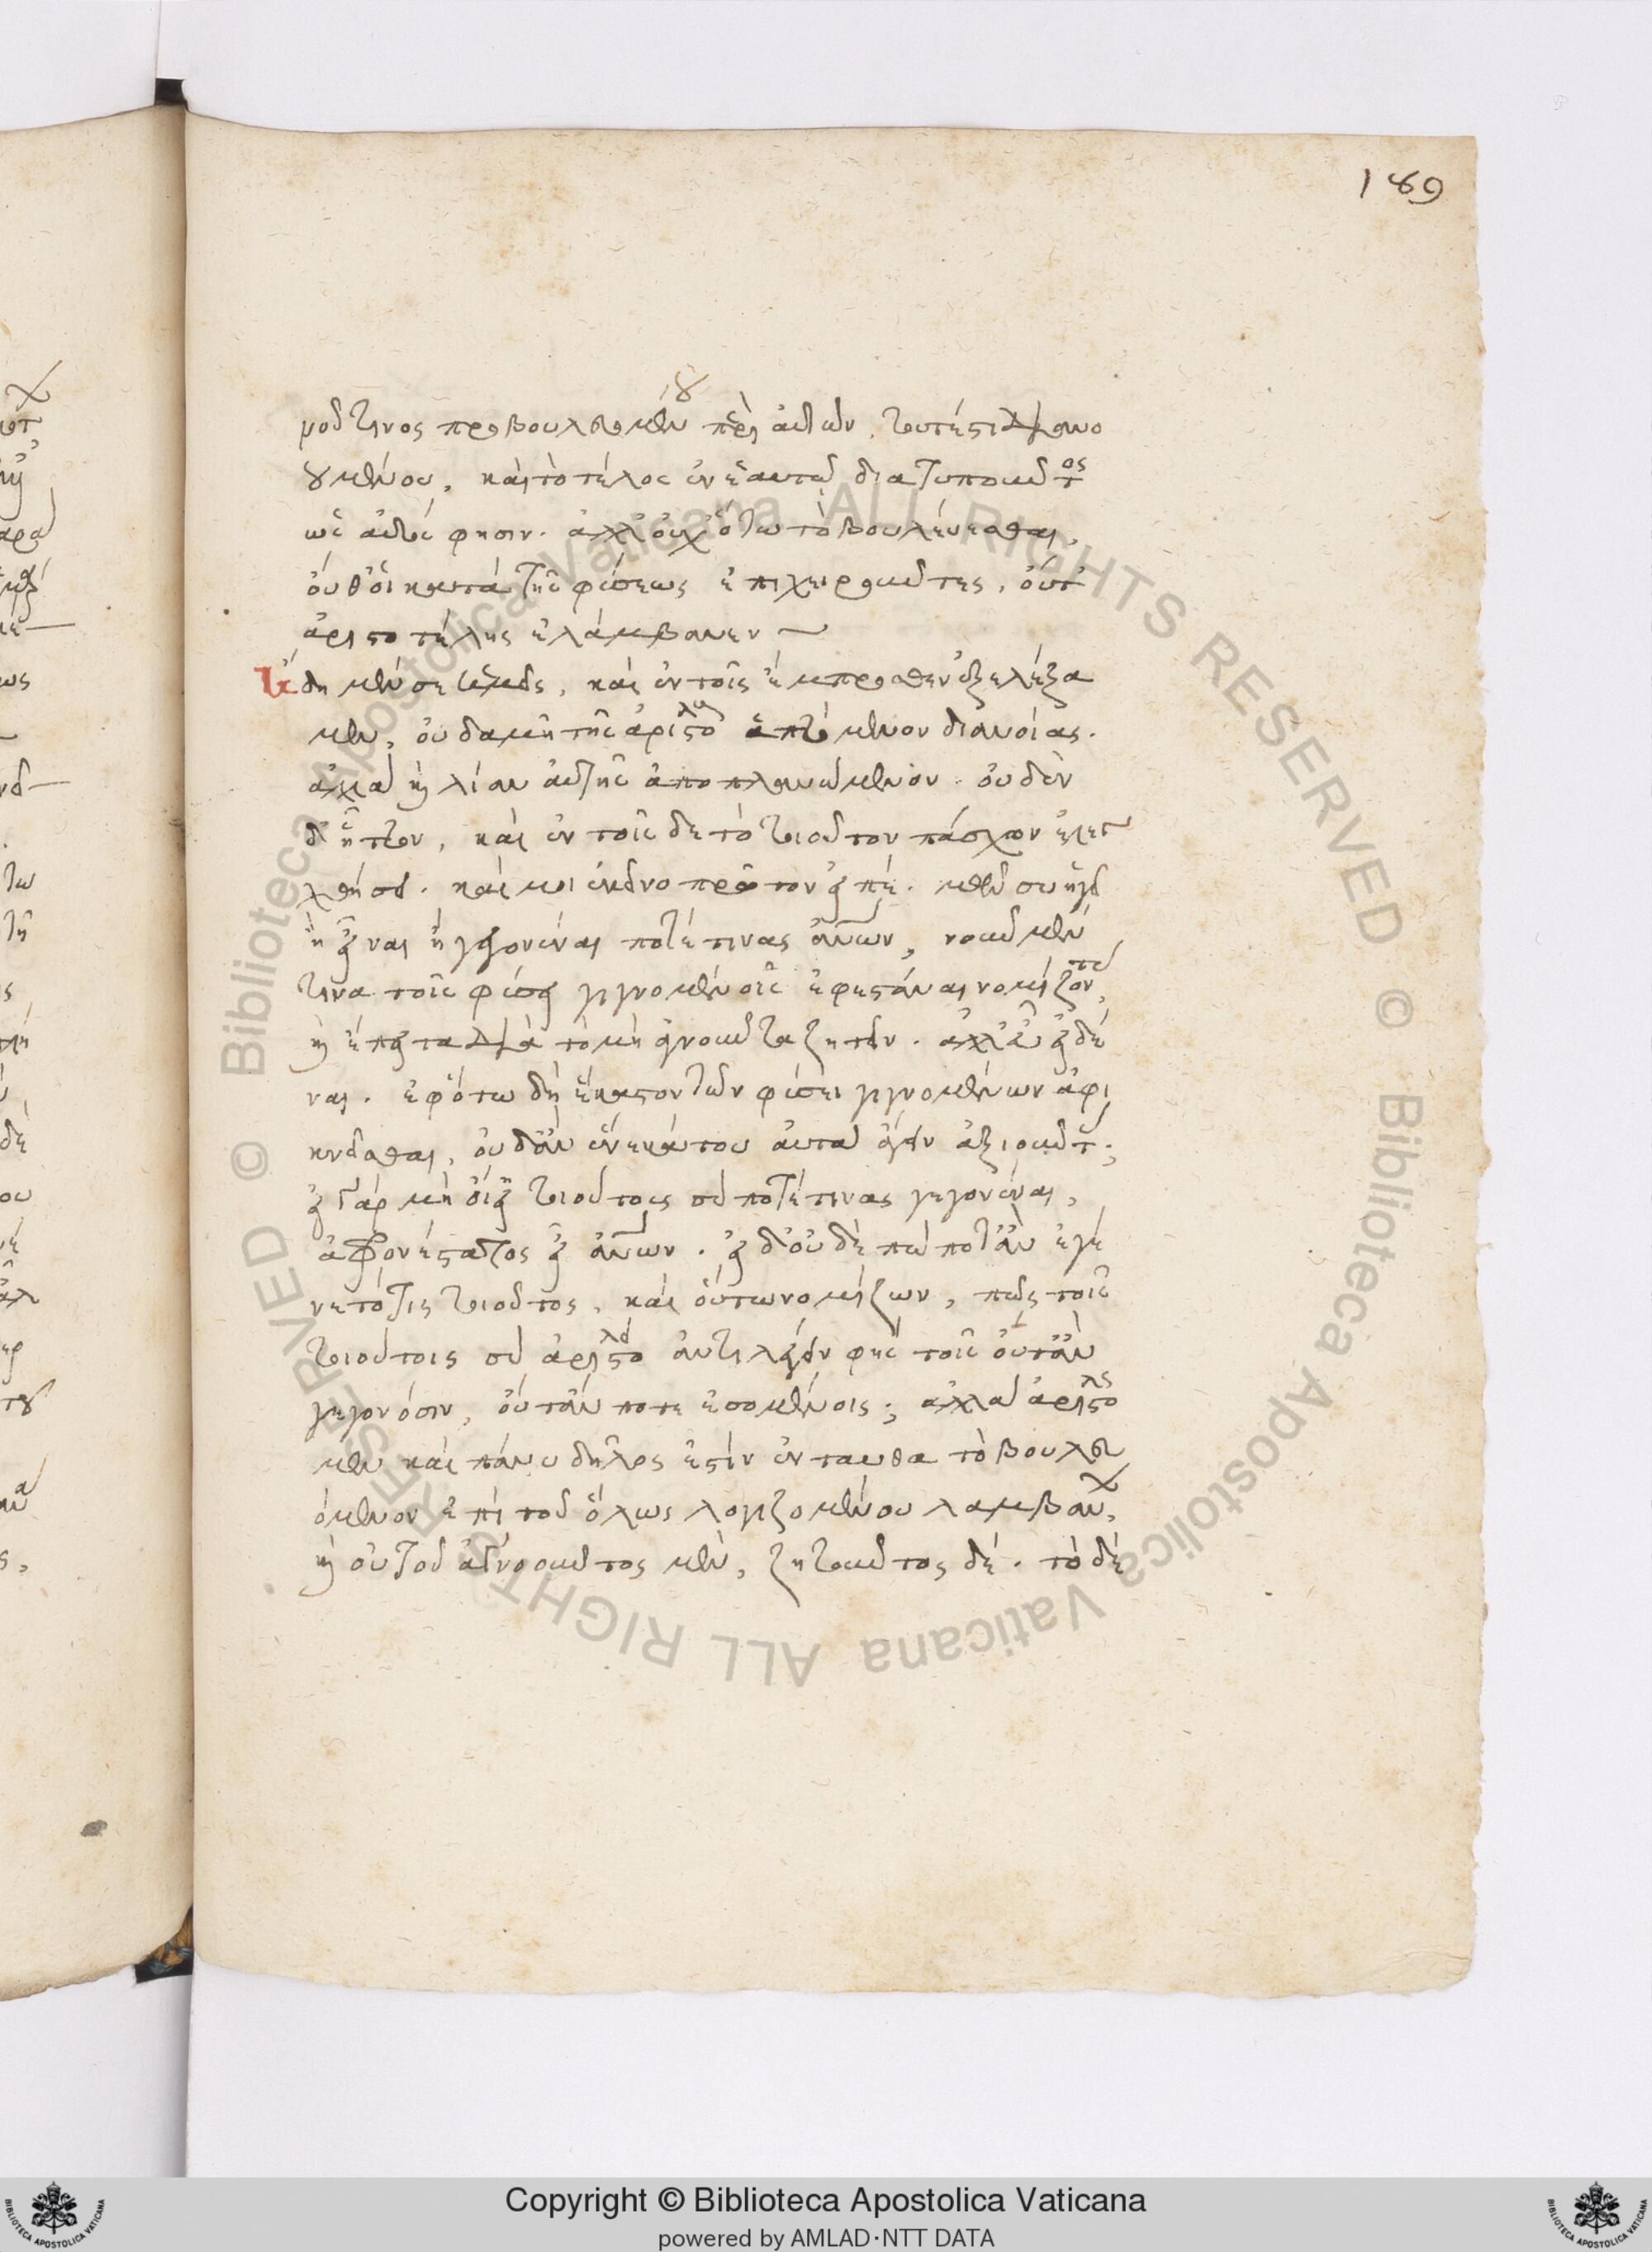 189
μοῦ τινος προβουλευομένου περὶ αὐτῶν, τουτέστι διανο
ουμένου, καὶ τὸ τέλος ἐν ἑαυτῷ διατυποῦντος
ὡς αὐτός φησιν. ἀλλ' οὐχ οὕτω τὸ βουλεύεσθαι,
οὔθ' οἱ κατὰ τῆς φύσεως ἐπιχειροῦντες, οὔτ'
ἀριστοτέλης ἐλάμβανεν
ἤδη μέν σε καὶ ἐν τοῖς ἔμπροσθεν ἐξελέγξα
μεν, οὐδαμῆ τῆς ἀριστο ἁπτόμενον διανοίας.
ἀλλὰ καὶ λίαν αὐτῆς ἀποπλανώμενον. οὐδὲν
δ' ἧττον, καὶ ἐν τοῖς δε τὸ τοιοῦτον πάσχων ἐλεγ
χθήσῃ. καί μοι ἐκεῖνο πρῶτον εἰπέ.
ἢ εἶναι ἢ γεγονέναι ποτέ τινας ἀνων, νοῦν μέν
τινα τοῖς φύσει γιγνομένοις ἐφεστάναι νομίζοντας,
καὶ ἔπειτα διὰ τὸ μὴ ἀγνοοῦντα ζητεῖν. ἀλλ' εὖ εἰδέ
ναι. ἐφ' ὅτῳ δὴ ἕκαστον τῶν φύσει γιγνομένων ἀφι
κνεῖσθαι, οὐδὲν ἕνεκά του αὐτὰ ἄγειν ἀξιοῦντας;
εἰ γὰρ μὴ οἴει τοιούτους σύ ποτέ τινας γεγονέναι,
ἀφρονέστατος εἶ ἀνων. εἰ δ' οὐδὲ πώποτ' ἂν ἐγέ
νετό τις τοιοῦτος, καὶ οὕτω νομίζων, πῶς τοῖς
τοιούτοις σὺ ἀριστο ἀντιλέγειν φῂς τοῖς οὔτ' ἂν
γεγονόσιν, οὔτ' ἄν ποτε ἐσομένοις; ἀλλὰ ἀριστο
μὲν καὶ πάνυ δῆλος ἐστὶν ἐνταῦθα τὸ βουλευ
όμενον ἐπὶ τοῦ ὅλως λογιζομένου λαμβάνων,
καὶ οὐ τοῦ ἀγνοοῦντος μὲν, ζητοῦντος δέ. τὸ δὲ
Copyright © Biblioteca Apostolica Vaticana
powered by AMLAD·NTT DATA